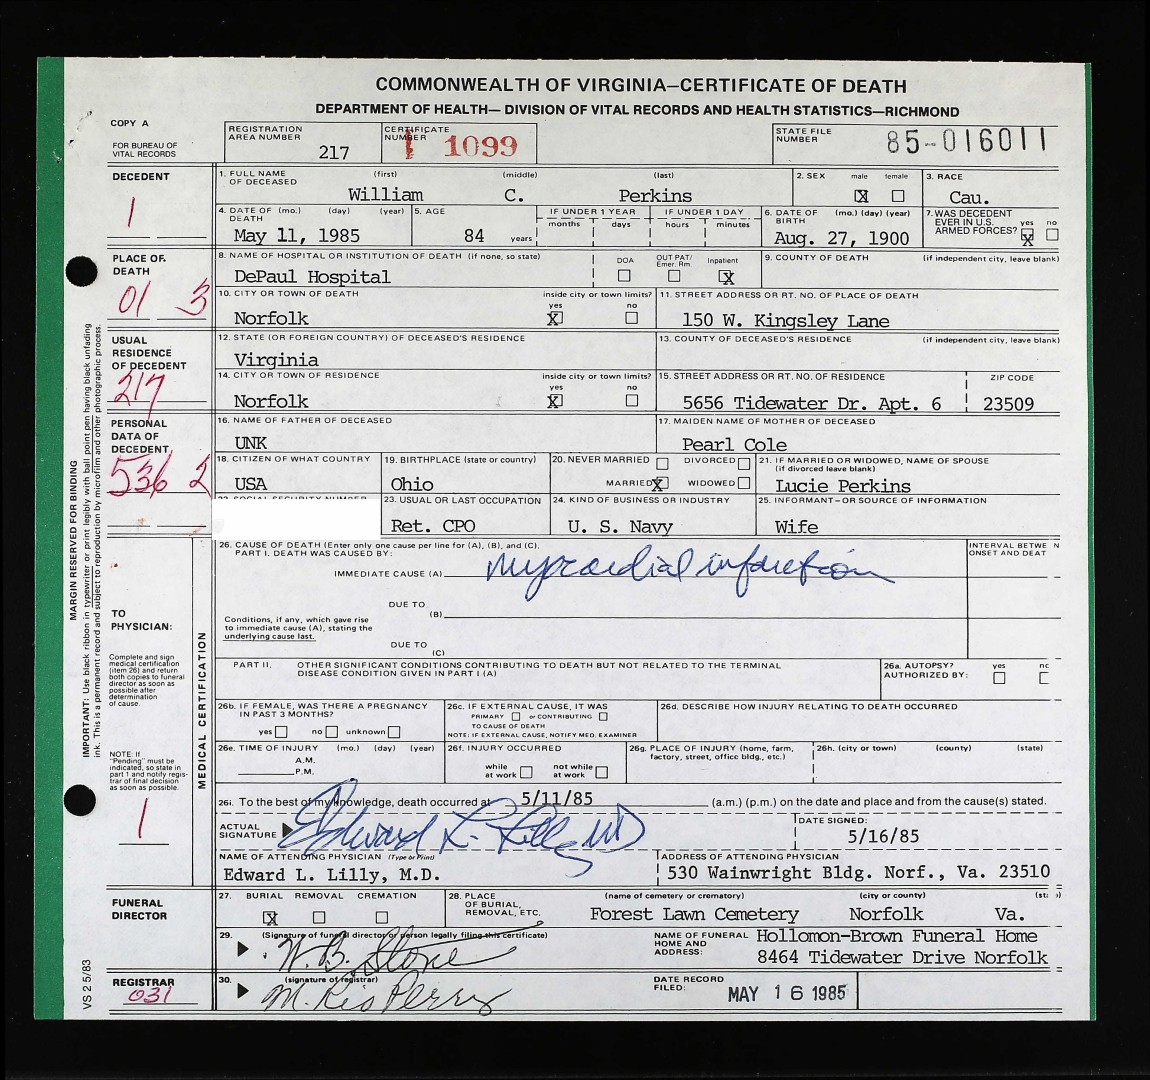 COMMONWEALTH OF VIRGINIA—CERTIFICATE OF DEATH
DEPARTMENT OF HEALTH— DIVISION OF VITAL RECORDS AND HEALTH STATISTICS—RICHMOND
COPY A
FOR BUREAU OF
VITAL RECORDS
REGISTRATION
AREA NUMBER 217
CERTIFICATE
NUMBER 1099
STATE FILE
NUMBER 85-016011
DECEDENT
1
1. FULL NAME (first) (middle) (last)
OF DECEASED
William C. Perkins
2. SEX male female
X
3. RACE
Cau.
4. DATE OF (mo.) (day) (year)
DEATH
May 11, 1985
5. AGE
84 years
IF UNDER 1 YEAR
months days
IF UNDER 1 DAY
hours minutes
6. DATE OF (mo.) (day) (year)
BIRTH
Aug. 27, 1900
7. WAS DECEDENT
EVER IN U.S. yes no
ARMED FORCES? X
PLACE OF
DEATH
01 3
8. NAME OF HOSPITAL OR INSTITUTION OF DEATH (if none, so state)
DePaul Hospital
DOA OUT PAT/ Inpatient
Emer. Rm.
X
9. COUNTY OF DEATH (if independent city, leave blank)
10. CITY OR TOWN OF DEATH inside city or town limits?
yes no
Norfolk X
11. STREET ADDRESS OR RT. NO. OF PLACE OF DEATH
150 W. Kingsley Lane
USUAL
RESIDENCE
OF DECEDENT
217
12. STATE (OR FOREIGN COUNTRY) OF DECEASED'S RESIDENCE
Virginia
13. COUNTY OF DECEASED'S RESIDENCE (if independent city, leave blank)
14. CITY OR TOWN OF RESIDENCE inside city or town limits?
yes no
Norfolk X
15. STREET ADDRESS OR RT. NO. OF RESIDENCE ZIP CODE
5656 Tidewater Dr. Apt. 6 23509
PERSONAL
DATA OF
DECEDENT
536 2
16. NAME OF FATHER OF DECEASED
UNK
17. MAIDEN NAME OF MOTHER OF DECEASED
Pearl Cole
18. CITIZEN OF WHAT COUNTRY
USA
19. BIRTHPLACE (state or country)
Ohio
20. NEVER MARRIED DIVORCED
MARRIED X WIDOWED
21. IF MARRIED OR WIDOWED, NAME OF SPOUSE
(if divorced leave blank)
Lucie Perkins
22. SOCIAL SECURITY NUMBER
23. USUAL OR LAST OCCUPATION
Ret. CPO
24. KIND OF BUSINESS OR INDUSTRY
U. S. Navy
25. INFORMANT—OR SOURCE OF INFORMATION
Wife
MARGIN RESERVED FOR BINDING
IMPORTANT: Use black ribbon in typewriter or print legibly with ball point pen having black unfading
ink. This is a permanent record and subject to reproduction by microfilm and other photographic process.
TO
PHYSICIAN:
Complete and sign
medical certification
(item 26) and return
both copies to funeral
director as soon as
possible after
determination
of cause.
NOTE: If
"Pending" must be
indicated, so state in
part 1 and notify regis-
trar of final decision
as soon as possible.
1
MEDICAL CERTIFICATION
26. CAUSE OF DEATH (Enter only one cause per line for (A), (B), and (C).
PART I. DEATH WAS CAUSED BY:
INTERVAL BETWE N
ONSET AND DEAT
IMMEDIATE CAUSE (A) Myocardial infarction
DUE TO
(B)
Conditions, if any, which gave rise
to immediate cause (A), stating the
underlying cause last.
DUE TO
(C)
PART II. OTHER SIGNIFICANT CONDITIONS CONTRIBUTING TO DEATH BUT NOT RELATED TO THE TERMINAL
DISEASE CONDITION GIVEN IN PART I (A)
26a. AUTOPSY? yes nc
AUTHORIZED BY:
26b. IF FEMALE, WAS THERE A PREGNANCY
IN PAST 3 MONTHS?
yes no unknown
26c. IF EXTERNAL CAUSE, IT WAS
PRIMARY or CONTRIBUTING
TO CAUSE OF DEATH
NOTE: IF EXTERNAL CAUSE, NOTIFY MED. EXAMINER
26d. DESCRIBE HOW INJURY RELATING TO DEATH OCCURRED
26e. TIME OF INJURY (mo.) (day) (year)
A.M.
P.M.
26f. INJURY OCCURRED
while not while
at work at work
26g. PLACE OF INJURY (home, farm,
factory, street, office bldg., etc.)
26h. (city or town) (county) (state)
26i. To the best of my knowledge, death occurred at 5/11/85 (a.m.) (p.m.) on the date and place and from the cause(s) stated.
ACTUAL
SIGNATURE Edward L. Lilly MD
DATE SIGNED:
5/16/85
NAME OF ATTENDING PHYSICIAN (Type or Print)
Edward L. Lilly, M.D.
ADDRESS OF ATTENDING PHYSICIAN
530 Wainwright Bldg. Norf., Va. 23510
FUNERAL
DIRECTOR
27. BURIAL REMOVAL CREMATION
X
28. PLACE (name of cemetery or crematory) (city or county)
OF BURIAL,
REMOVAL, ETC.
Forest Lawn Cemetery Norfolk Va.
29. (Signature of funeral director or person legally filing this certificate)
W. B. Stone
NAME OF FUNERAL
HOME AND
ADDRESS:
Hollomon-Brown Funeral Home
8464 Tidewater Drive Norfolk
REGISTRAR
031
30. (signature of registrar)
DATE RECORD
FILED: MAY 16 1985
VS 2 5/83